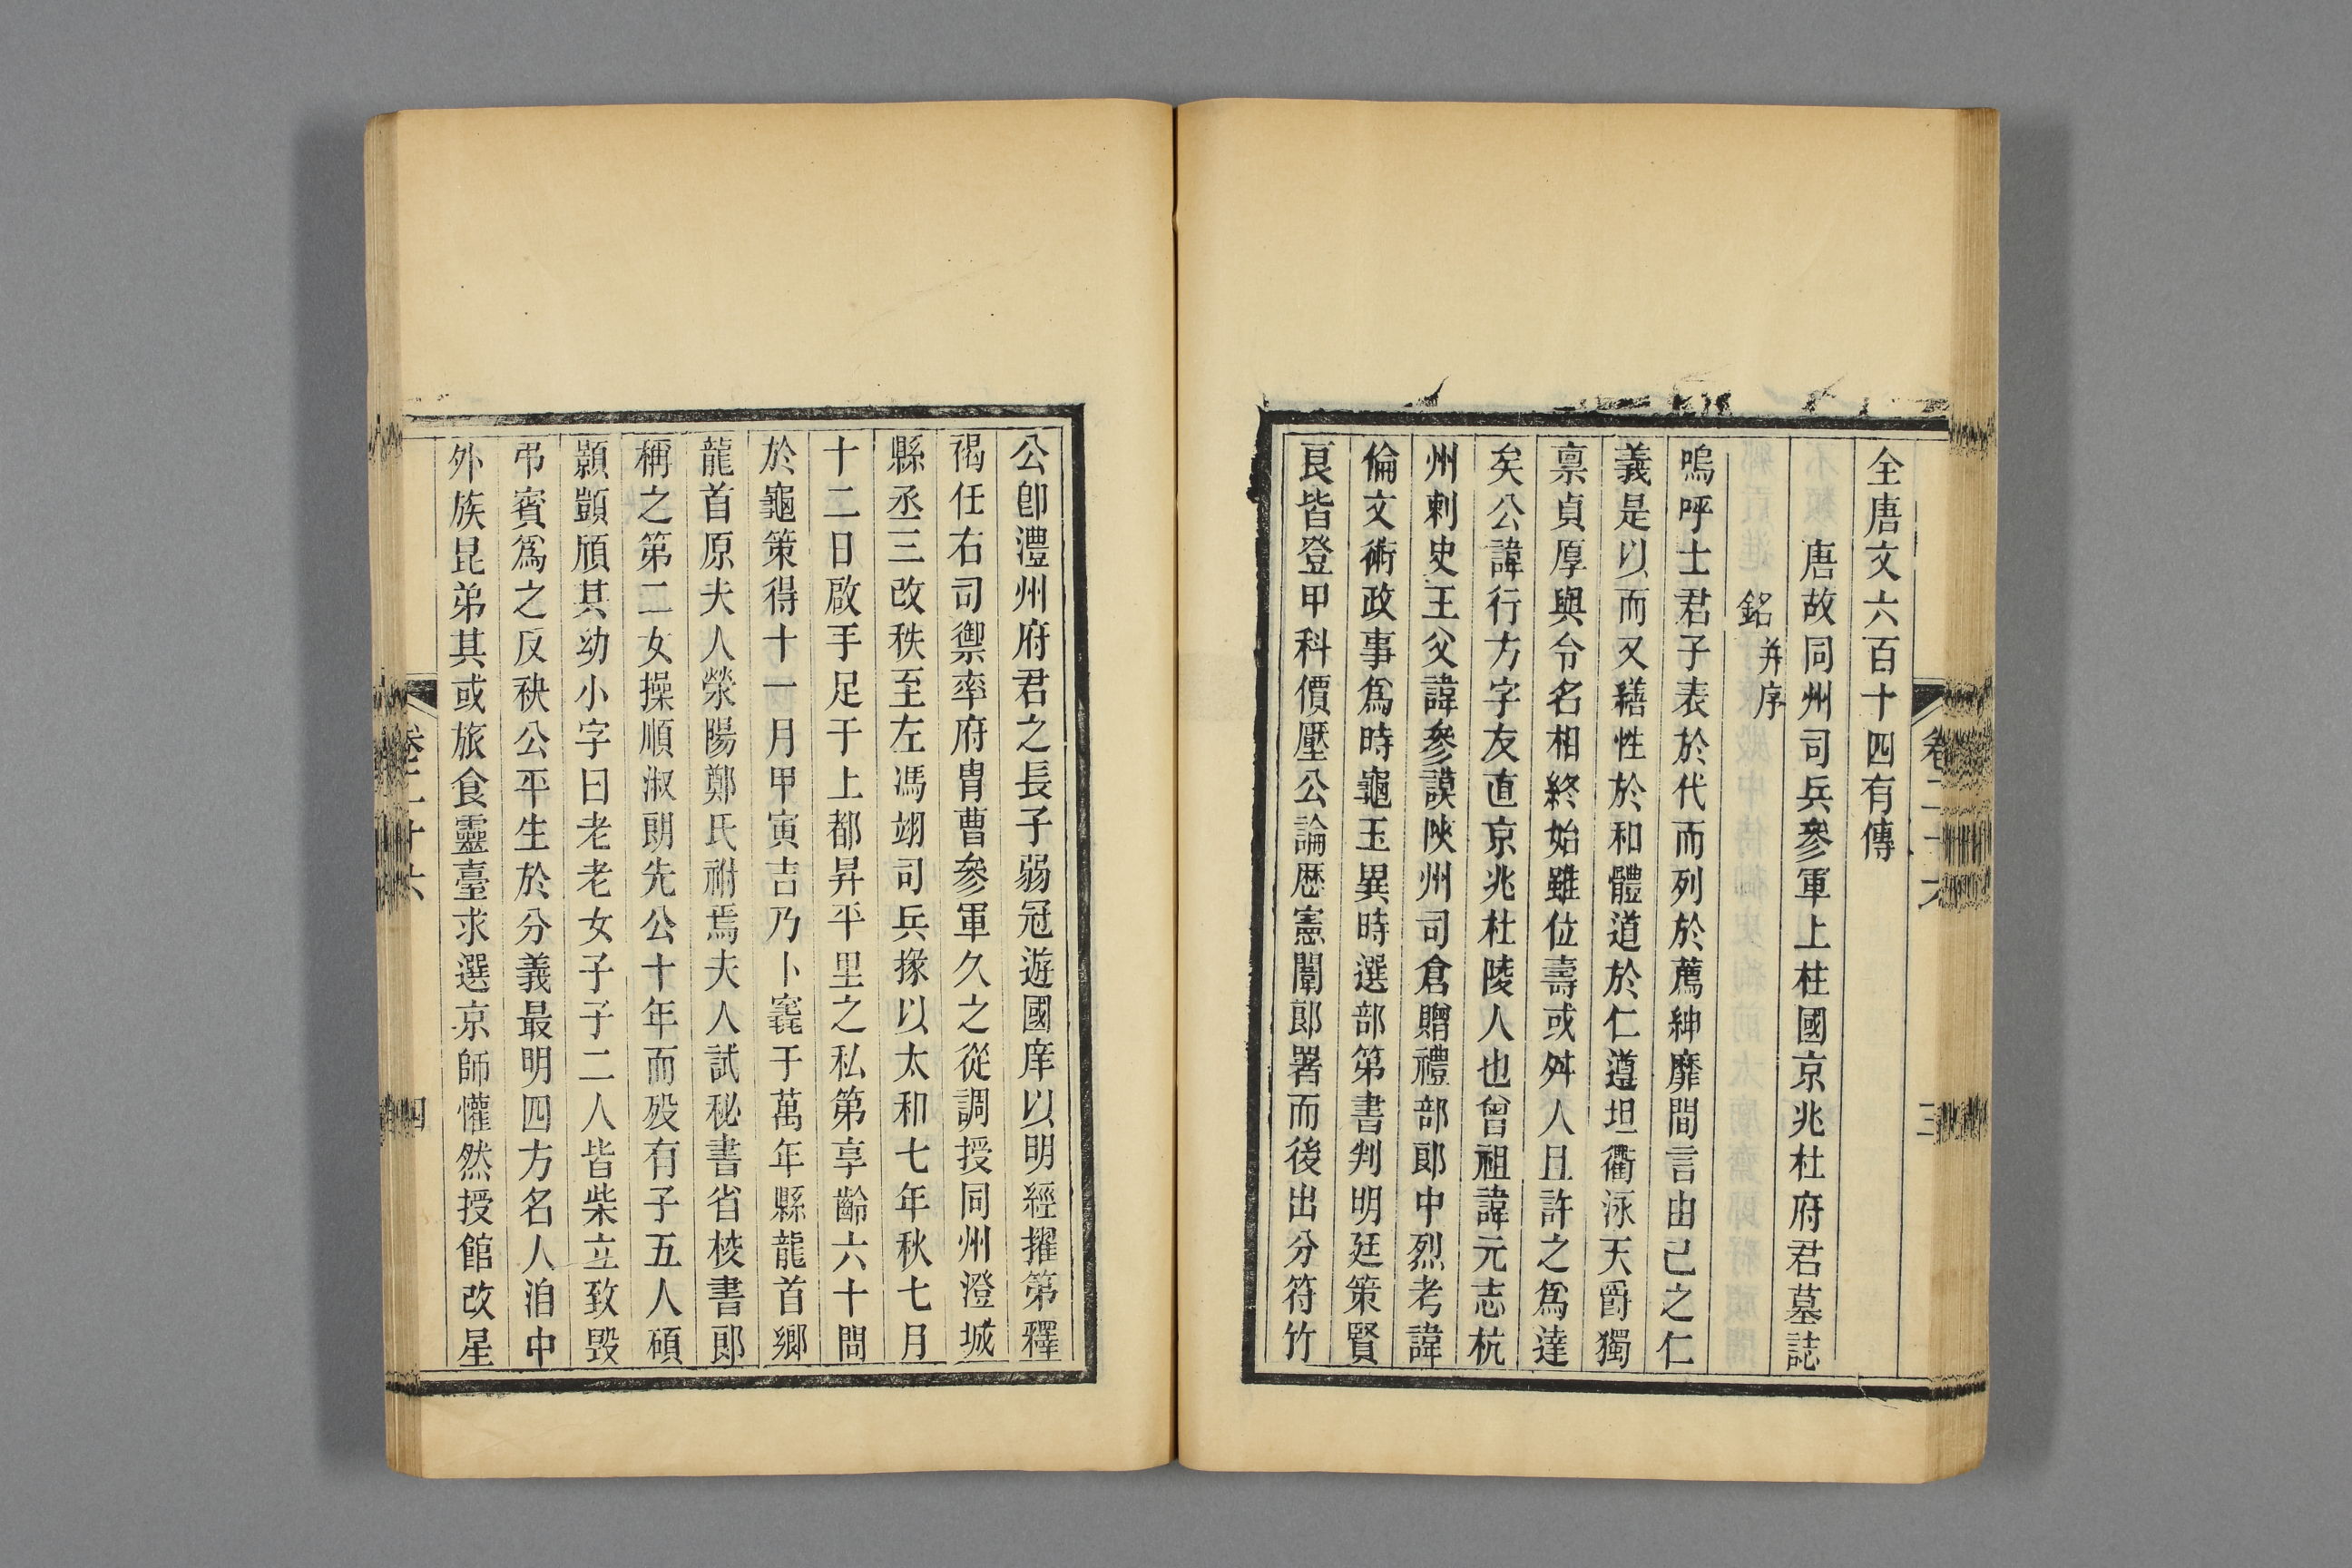 全唐文六百十四有傳
唐故同州司兵參軍上柱國京兆杜府君墓誌
銘并序
嗚呼士君子表於代而列於薦紳靡間言由己之仁
義是以而又繕性於和體道於仁遵坦衢泳天爵獨
禀貞厚與令名相終始雖位壽或舛人且許之爲達
矣公諱行方字友直京兆杜陵人也曾祖諱元志杭
州刺史王父諱參謨陝州司倉贈禮部郎中烈考諱
倫文術政事爲時龜玉異時選部第書判明廷策賢
良皆登甲科價壓公論歴憲闈郎署而後出分符竹
公卽澧州府君之長子弱冠遊國庠以明經擢第釋
褐任右司禦率府胄曹參軍久之從調授同州澄城
縣丞三改秩至左馮翊司兵掾以太和七年秋七月
十二日啟手足于上都昇平里之私第享齡六十問
於龜策得十一月甲寅吉乃卜竁于萬年縣龍首鄉
龍首原夫人滎陽鄭氏祔焉夫人試秘書省校書郎
稱之第二女操順淑朗先公十年而殁有子五人碩
顥顗頎其幼小字曰老老女子子二人皆柴立致毀
弔賓爲之反袂公平生於分義最明四方名人洎中
外族昆弟其或旅食靈臺求選京師懽然授館改星
卷二十六
三
卷二十六
四